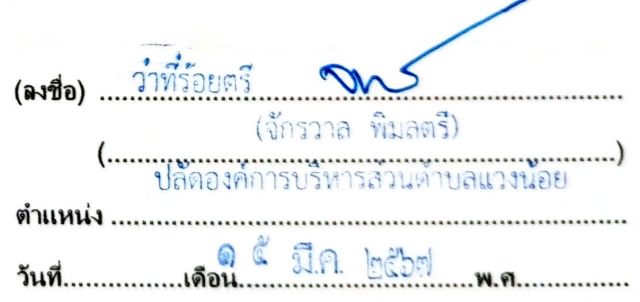 (ลงชื่อ) ว่าที่ร้อยตรี
(จักรวาล พิมลตรี)
(................................................................)
ปลัดองค์การบริหารส่วนตำบลแวงน้อย
ตำแหน่ง ................................................................
๑ ๕ มี.ค. ๒๕๖๗
วันที่....................เดือน........................................พ.ศ....................